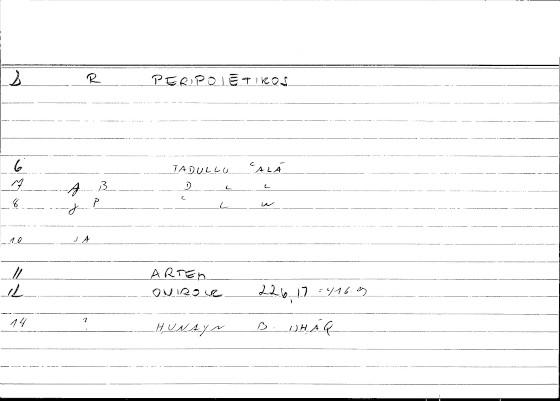 R PERIPOIĒTIKOS
6 TADULLU ʿALĀ
17 B D L L
8 P ʿ L W
10 JA
11 ARTEM
12 226,17 =416
14 ? HUNAYN B. ISHĀQ